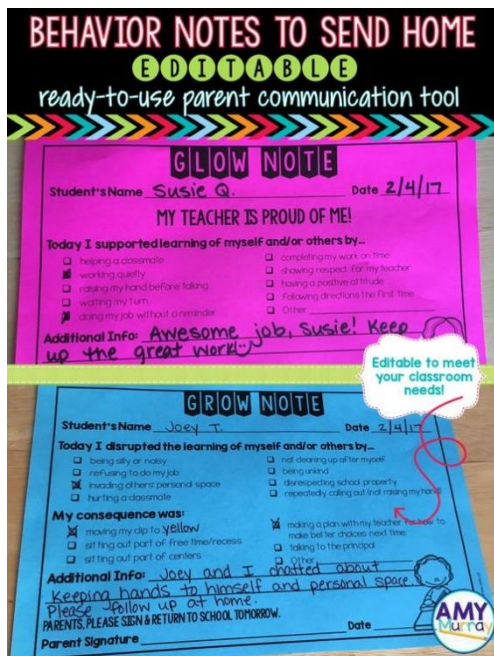 BEHAVIOR NOTES TO SEND HOME
EDITABLE
ready-to-use parent communication tool
GLOW NOTE
Student's Name Susie Q. Date 2/4/17
MY TEACHER IS PROUD OF ME!
Today I supported learning of myself and/or others by...
helping a classmate
working quietly
raising my hand before talking
waiting my turn
doing my job without a reminder
completing my work on time
showing respect for my teacher
having a positive attitude
following directions the first time
Other
Additional Info: Awesome job, Susie! Keep
up the great work
Editable to meet
your classroom
needs!
GROW NOTE
Student's Name Joey T. Date 2/4/17
Today I disrupted the learning of myself and/or others by...
being silly or noisy
refusing to do my job
invading others' personal space
hurting a classmate
not cleaning up after myself
being unkind
disrespecting school property
repeatedly calling out (not raising my hand)
My consequence was:
moving my clip to yellow
sitting out part of free time/recess
sitting out part of centers
making a plan with my teacher for how to
make better choices next time
talking to the principal
Other
Additional Info: Joey and I chatted about
Keeping hands to himself and personal space.
Please follow up at home.
PARENTS, PLEASE SIGN & RETURN TO SCHOOL TOMORROW.
Parent Signature Date
AMY
Murray